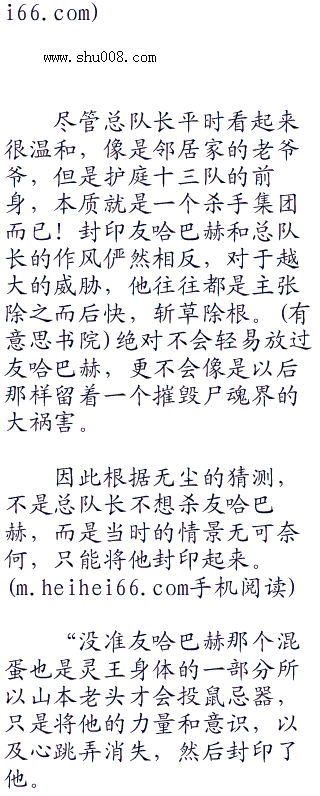 i66.com)
www.shu008.com
尽管总队长平时看起来
很温和，像是邻居家的老爷
爷，但是护庭十三队的前
身，本质就是一个杀手集团
而已！封印友哈巴赫和总队
长的作风俨然相反，对于越
大的威胁，他往往都是主张
除之而后快，斩草除根。(有
意思书院)绝对不会轻易放过
友哈巴赫，更不会像是以后
那样留着一个摧毁尸魂界的
大祸害。
因此根据无尘的猜测，
不是总队长不想杀友哈巴
赫，而是当时的情景无可奈
何，只能将他封印起来。
(m.heihei66.com手机阅读)
“没准友哈巴赫那个混
蛋也是灵王身体的一部分所
以山本老头才会投鼠忌器，
只是将他的力量和意识，以
及心跳弄消失，然后封印了
他。